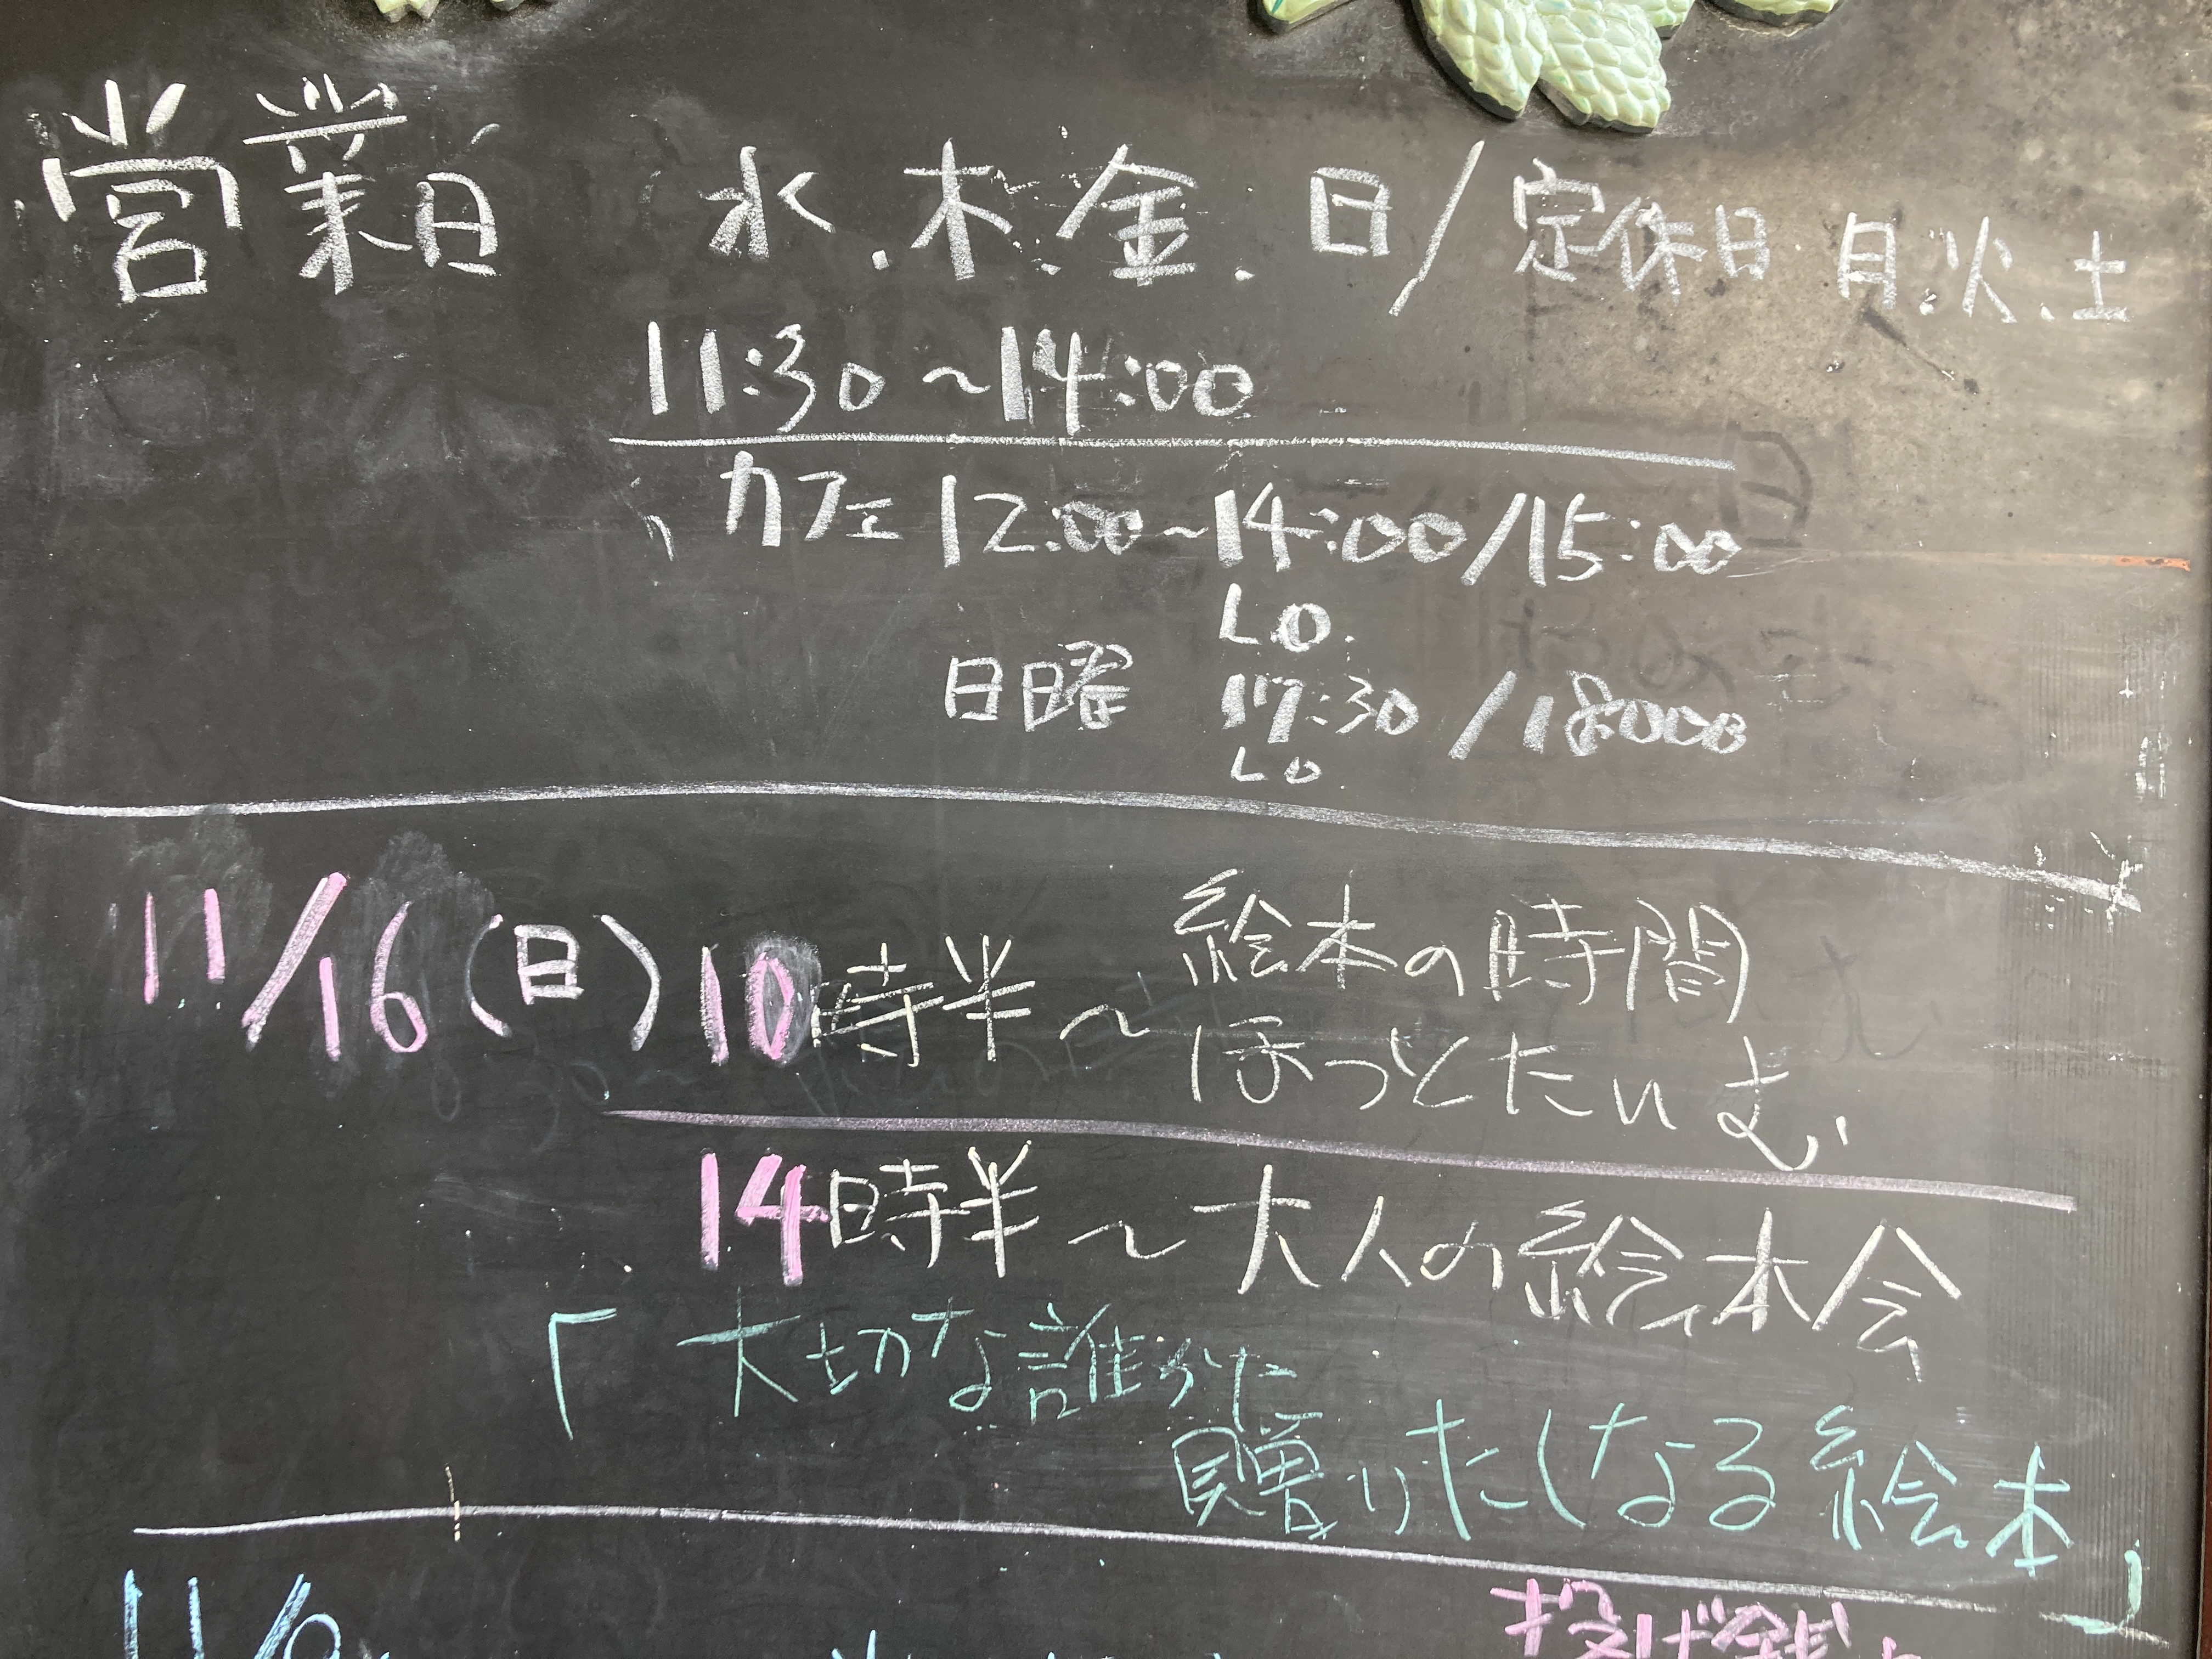 営業日 水.木.金.日/定休日 月.火.土
11:30〜14:00
カフェ 12:00〜14:00/15:00
L.O.
日曜 17:30/18:000
L.O.
11/16(日) 10時半〜絵本の時間
ほっとたいむ
14時半〜大人の絵本会
「大切な誰かに
贈りたくなる絵本」
投げ銭
11/